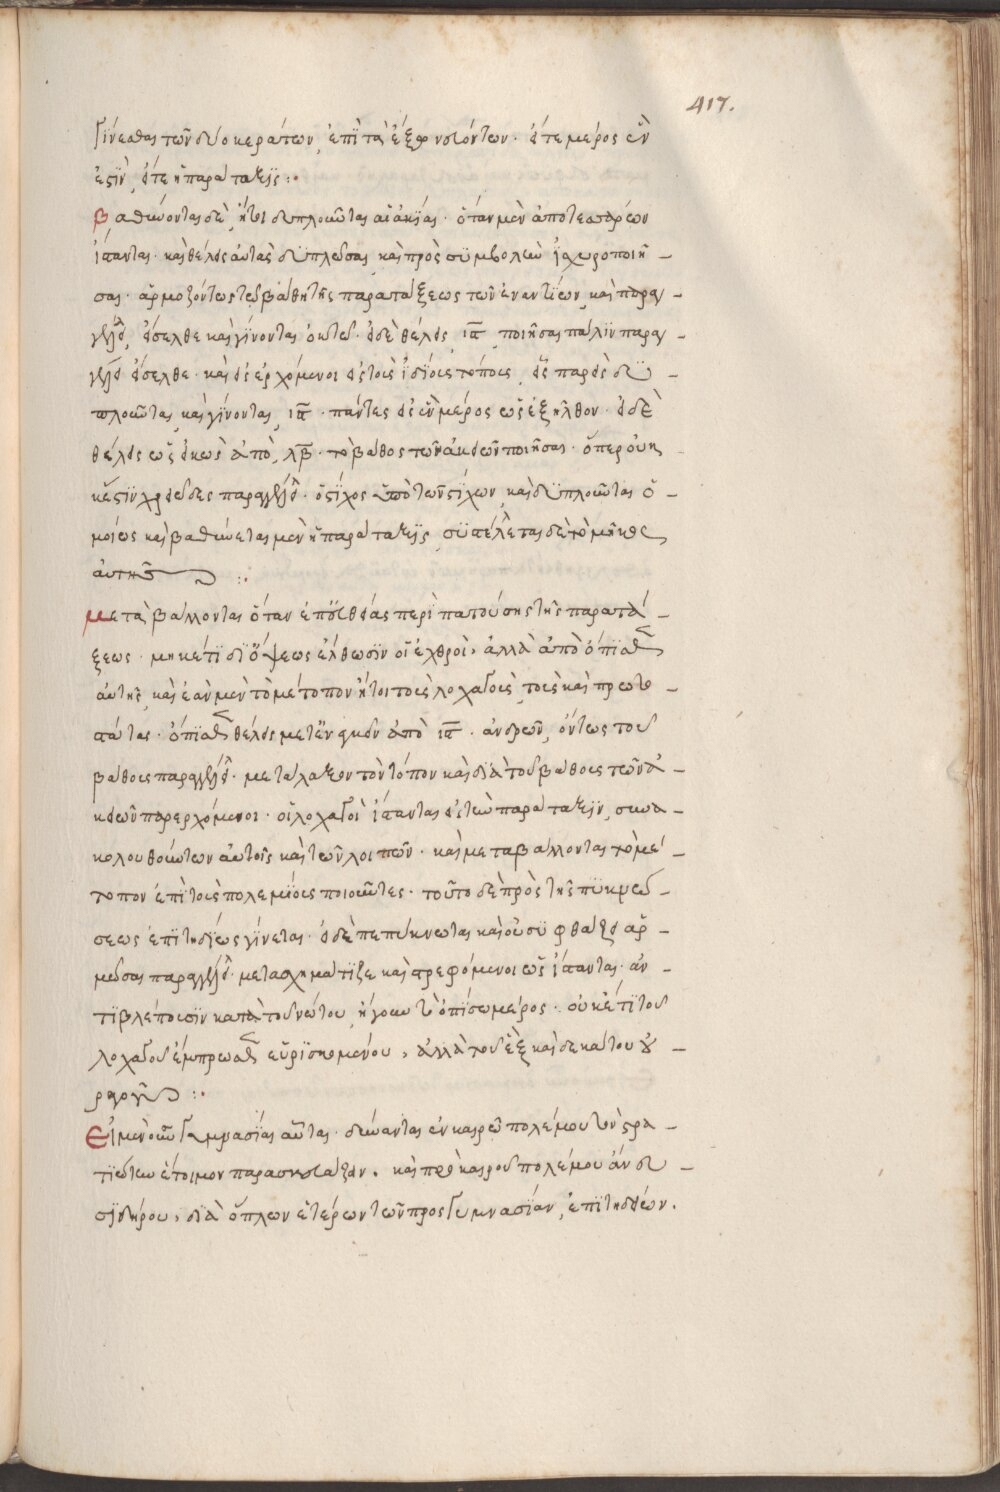 417.
γίνεσθαι τῶν δύο κεράτων, ἐπὶ τὰ ἔξω νευόντων· εἴτε μέρος ἓν
ἐστὶν, εἴτε ἡ παράταξις :·
βαθύνονται δὲ, ἤτοι διπλοῦνται αἱ ἀκίαι· ὅταν μὲν ἀπὸ τεσσάρων
ἵστανται· καὶ θέλεις αὐτὰς διπλῶσαι, καὶ πρὸς συμβολὴν ἰσχυροποιῆ-
σαι· ἁρμοζόντως τῷ βάθη τῆς παρατάξεως τῶν ἐναντίων, καὶ παραγ-
γέλλει, εἴσελθε καὶ γίνονται ὀκτώ· εἰ δὲ θέλεις, ιϛ, ποιῆσαι πάλιν παραγ-
γέλλει εἴσελθε· καὶ εἰσερχόμενοι εἰς τοὺς ἰδίους τόπους, εἷς παρ' εἷς δι-
πλοῦνται, καὶ γίνονται, ιϛ· πάντες εἰς ἓν μέρος ὡς ἐξῆλθον· εἰ δὲ
θέλεις ὡς εἰκὸς ἀπὸ, λβ· τὸ βάθος τῶν ἀκιῶν ποιῆσαι· ὅπερ οὐκ
ἔστιν χρειῶδες παραγγέλλει· ὁ στίχος ὑπὸ τῶν στίχων, καὶ διπλοῦνται ὁ-
μοίως καὶ βαθύνεται μὲν ἡ παράταξις, συστέλλεται δὲ τὸ μῆκος
αὐτῆς :·
Μεταβάλλονται ὅταν ἐπ' εὐθείας περιπατούσης τῆς παρατά-
ξεως· μηκέτι δι' ὄψεως ἔλθωσιν οἱ ἐχθροί, ἀλλὰ ἀπὸ ὄπισθεν
αὐτῆς, καὶ ἐὰν μὲν τὸ μέτοπον ἤτοι τοὺς λοχαγοὺς, τοὺς καὶ πρωτο-
στάτας· ὄπισθεν θέλεις μετενεγκεῖν ἀπὸ ιϛ· ἀνδρῶν, ὄντως τοῦ
βάθους παραγγέλλει· μετάλαξον τὸν τόπον καὶ διὰ τοῦ βάθους τῶν ἀ-
κιῶν παρερχόμενοι· οἱ λοχαγοὶ ἵστανται εἰς τὴν παράταξιν, συνα-
κολουθούντων αὐτοῖς καὶ τῶν λοιπῶν· καὶ μεταβάλλονται τὸ μέ-
τοπον ἐπὶ τοὺς πολεμίους ποιοῦντες· τοῦτο δὲ πρὸς τῆς πυκνώ-
σεως ἐπιτηδίως γίνεται· εἰ δὲ πεπύκνωται καὶ οὐ συμφθάζει ἁρ-
μῶσαι παραγγέλλει· μετασχημάτιζε καὶ στρεφόμενοι ὡς ἵστανται· ἀν-
τιβλέπουσιν κατὰ τοῦ νώτου, ἤγουν τὸ ὀπίσω μέρος· οὐκέτι τοῦ
λοχαγοῦ ἔμπροσθεν εὑρισκομένου, ἀλλὰ τοῦ ἓξ καὶ δεκάτου οὐ-
ραγοῦ :·
Εἰ μὲν οὖν γυμνασίαι αὗται· δύνανται ἐν καιρῷ πολέμου τὸν στρα-
τιώτην ἕτοιμον παρασκευάζειν. καὶ πρὸ καιροῦ πολέμου ἄνευ
σιδήρου, διὰ ὅπλων ἑτέρων τῶν πρὸς γυμνασίαν, ἐπιτηδείων.